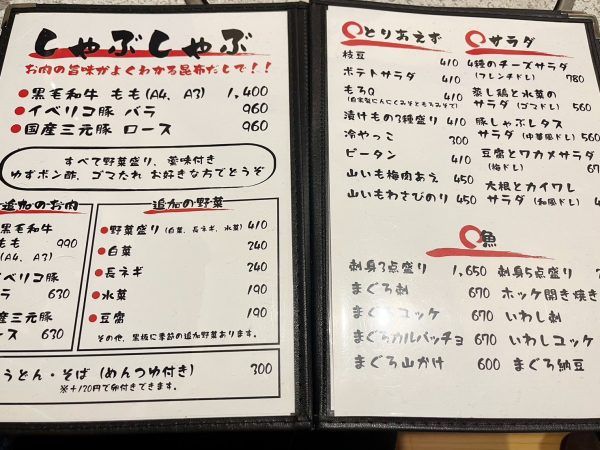 しゃぶしゃぶ
お肉の旨味がよくわかる昆布だしで!!
●黒毛和牛 もも(A4、A3) 1,400
●イベリコ豚 バラ 960
●国産三元豚 ロース 960
すべて野菜盛り、薬味付き
ゆずポン酢、ゴマたれ お好きな方でどうぞ
追加のお肉
黒毛和牛
もも 990
(A4、A3)
イベリコ豚
ラ 630
産三元豚
ース 630
追加の野菜
●野菜盛り(白菜、長ネギ、水菜) 410
●白菜 240
●長ネギ 240
●水菜 190
●豆腐 190
その他、黒板に季節の追加野菜あります。
うどん・そば (めんつゆ付き) 300
※+120円で卵付きできます。
とりあえず
枝豆 410
ポテトサラダ 410
もろQ 410
漬けもの3種盛り 410
冷やっこ 300
ピータン 410
山いも梅肉あえ 450
山いもわさびのり 450
サラダ
4種のチーズサラダ
(フレンチドレ) 780
蒸し鶏と水菜の
サラダ (ゴマドレ) 560
豚しゃぶレタス
サラダ (中華風ドレ) 560
豆腐とワカメサラダ
(梅ドレ) 67
大根とカイワレ
サラダ (和風ドレ) 56
魚
刺身3点盛り 1,650
まぐろ刺 670
まぐろユッケ 670
まぐろカルパッチョ 670
まぐろ山かけ 600
刺身5点盛り
ホッケ開き焼き
いわし刺
いわしユッケ
まぐろ納豆